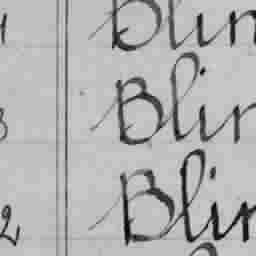 Blin
3 Blin
2 Blin